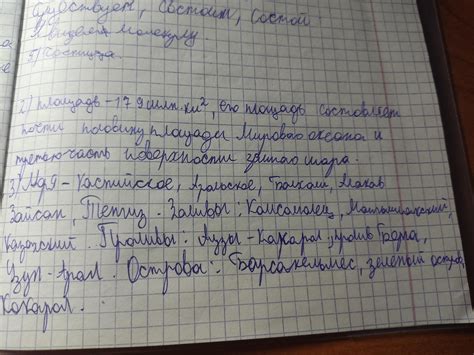 существует, состоит, состой
выделен молекулу
2) Частица.
2) Площадь - 179 млн. км², его площадь составляет
почти половину площади Мирового океана и
третью часть поверхности земного шара.
3) Моря - Каспийское, Аральское, Балхаш, Алаколь
Зайсан, Тенгиз. Заливы: Комсомолец, Мангышлакский,
Казахский. Проливы: Аузы - Кокарал, пролив Берга,
Узун - Арал. Острова: Барсакельмес, зеленый остров,
Кокарал.